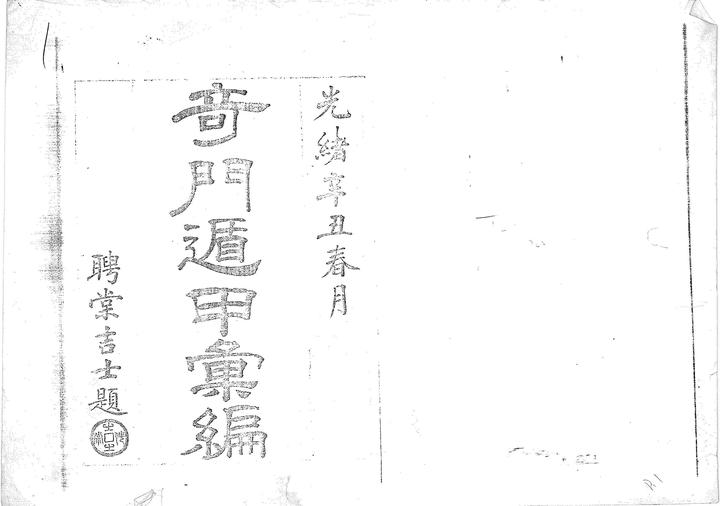 光緒辛丑春月
奇門遁甲彙編
聘棠言士題
P.1